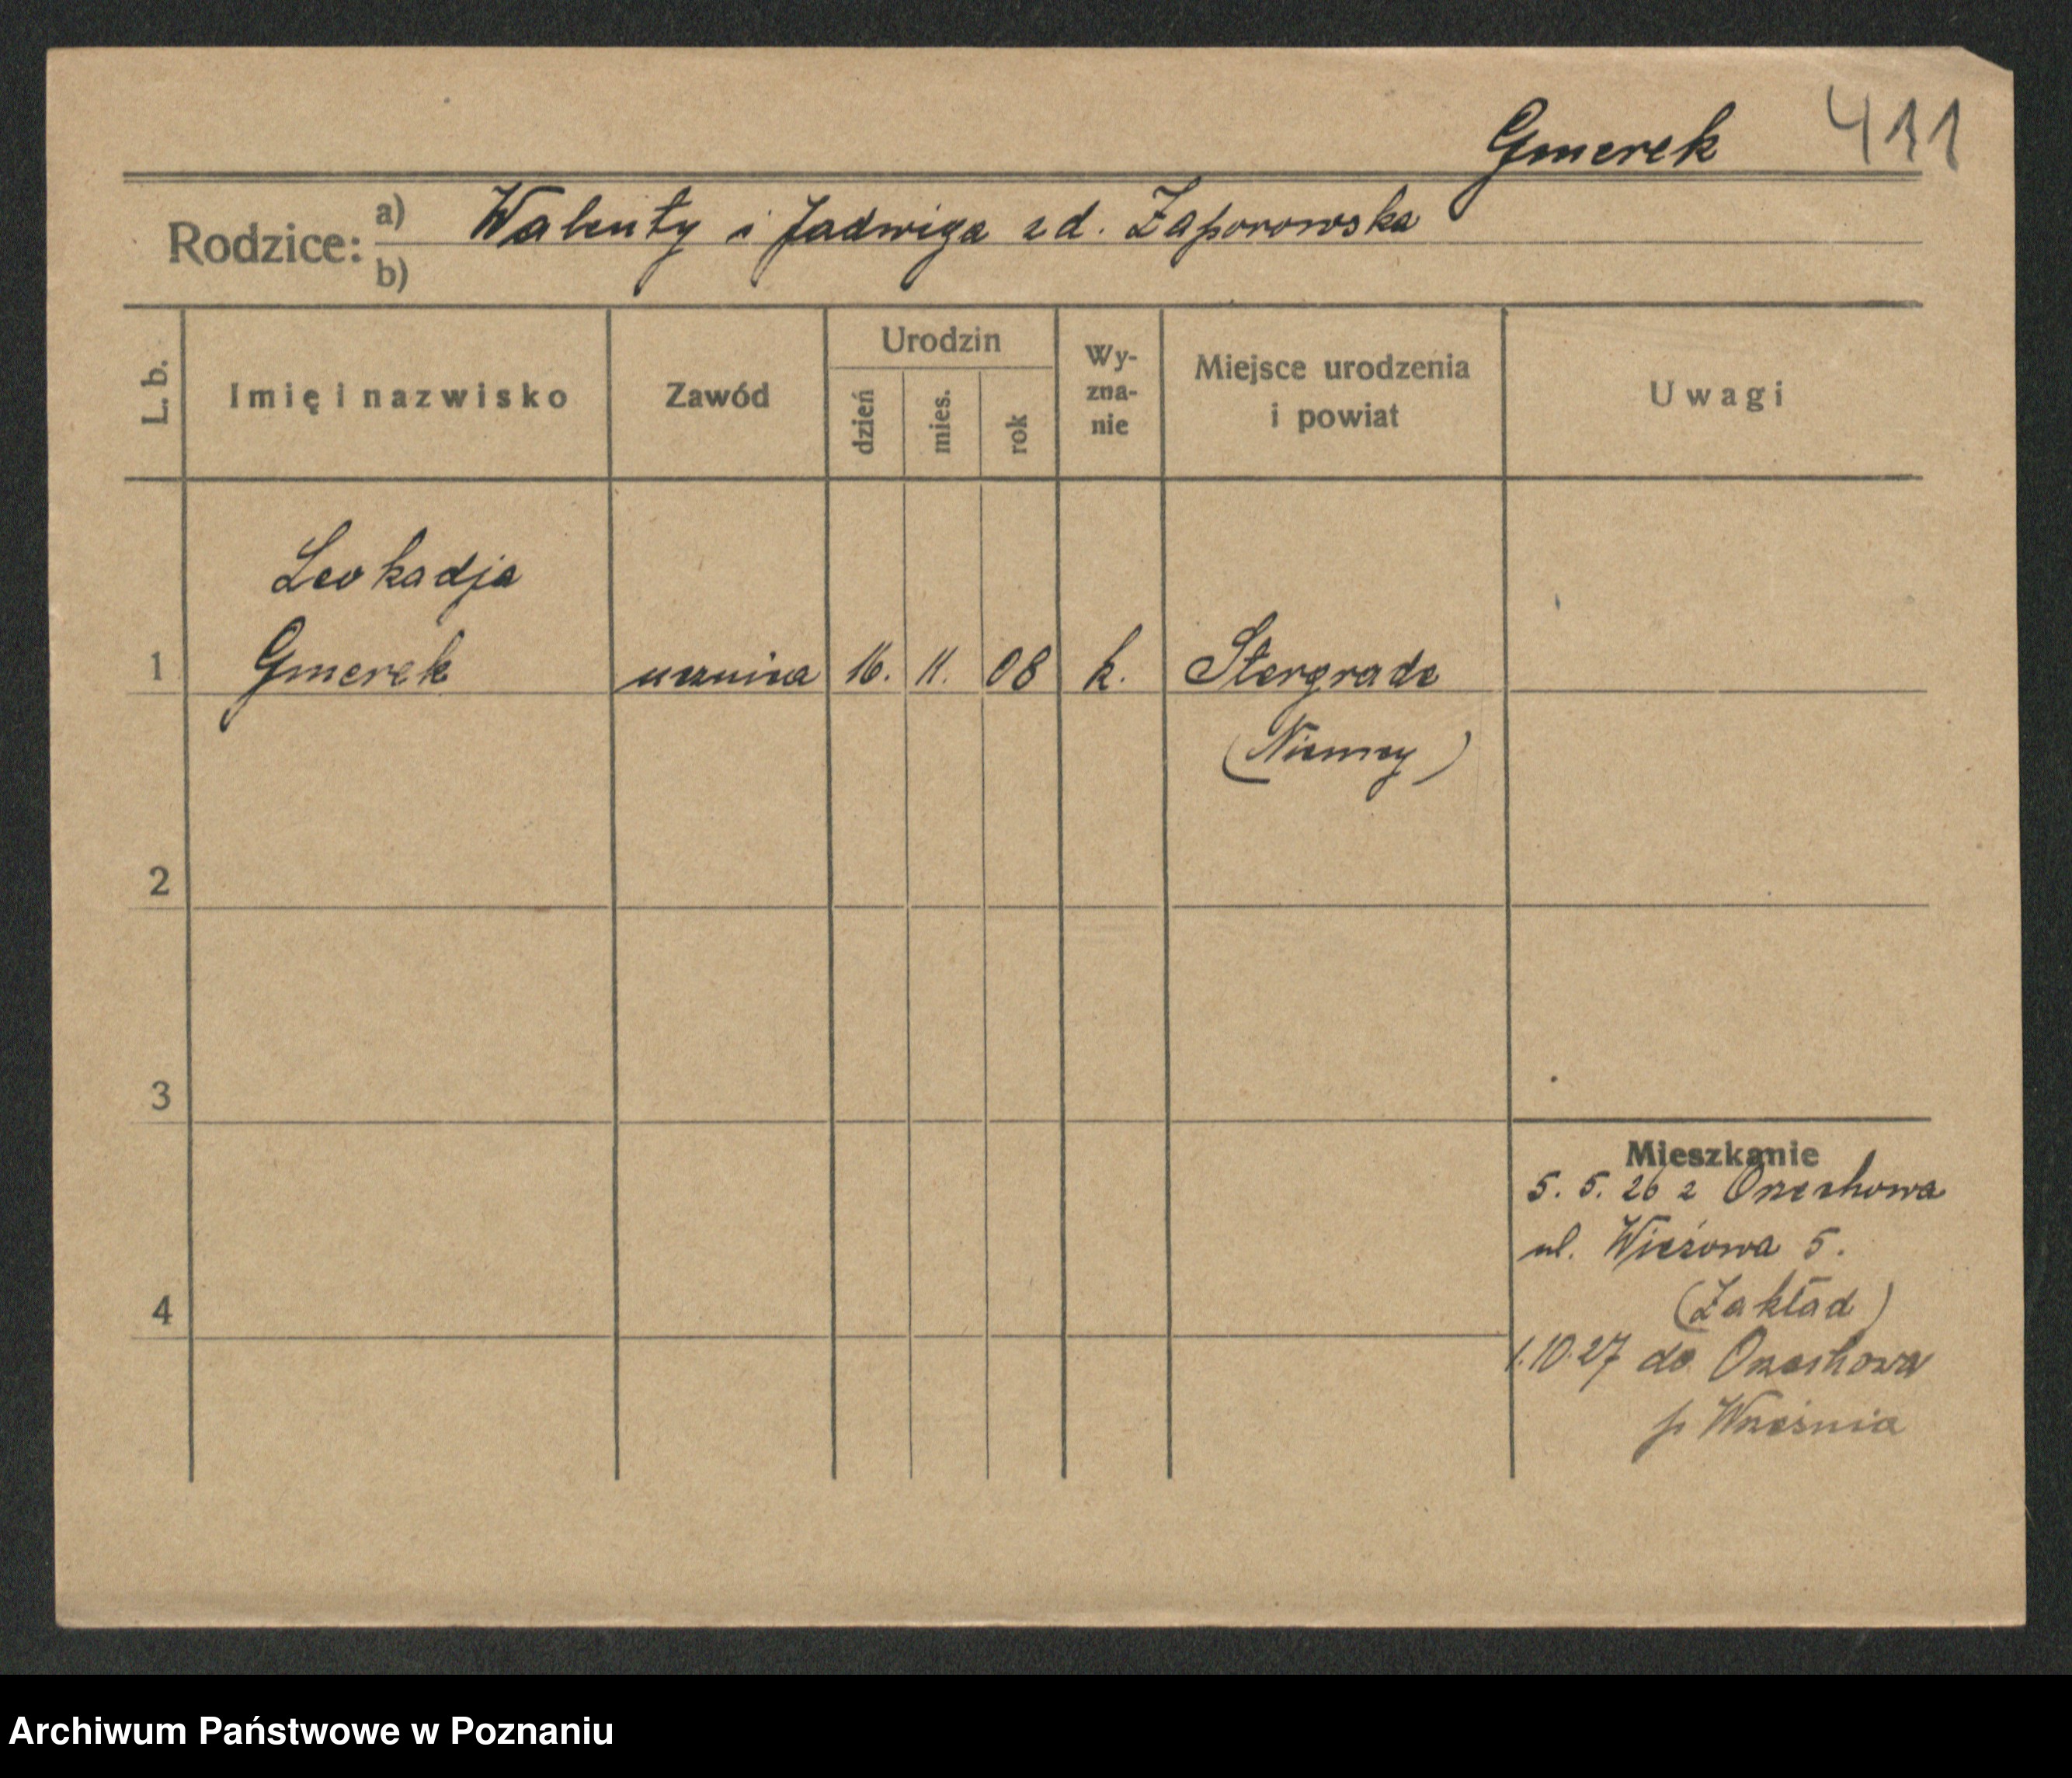 Gmerek 411
Rodzice: a) Walenty i Jadwiga z d. Zaporowska
b)
L. b. Imię i nazwisko Zawód Urodzin dzień mies. rok Wy-zna-nie Miejsce urodzenia i powiat Uwagi
Leokadja
1 Gmerek ucznica 16. 11. 08 k. Stergrade
(Niemcy)
2
3
Mieszkanie
5. 5. 26 z Orzechowa
ul. Wieżowa 5.
(Zakład)
4
1.10.27 do Orzechowa
p Września
Archiwum Państwowe w Poznaniu